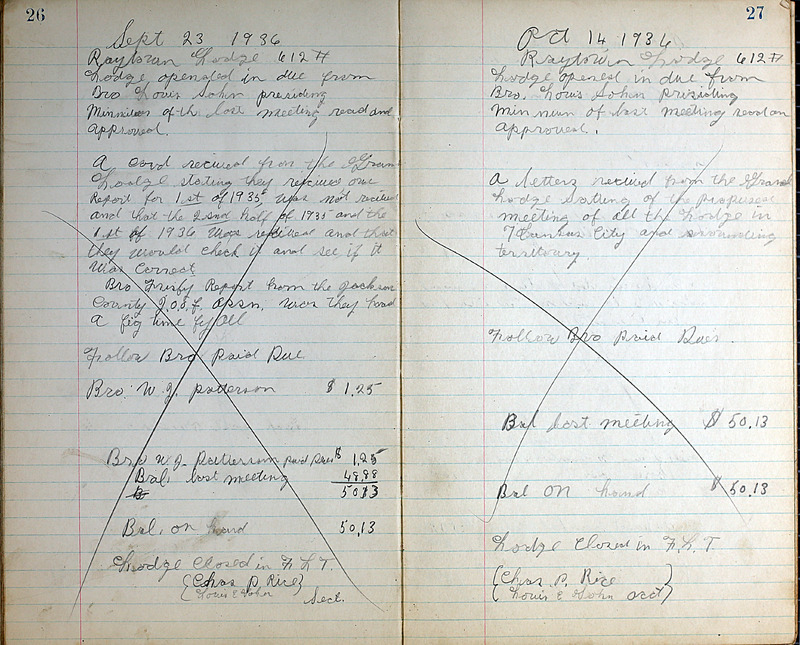 26
Sept 23 1936
Raytown Lodge 612 #
Lodge openated in due from
Bro Louis Sohn presiding
Minniues of the last meeting read and
approved.
A card recived from the Gran
Lodge stating they recived our
Report for 1st of 1935, was not recived
and that the 2and half of 1935 and the
1st of 1936 was recived and that
they would check it and see if it
was correct
Bro Report from the Jackson
County I.O.O.F. Assn, was they had
a big time
Follow Bro paid Due
Bro. W. J. Patterson $ 1.25
Bro W J. Patterson paid Dues $ 1.25
Bal. last meeting 48.88
50.13
Bal. on hand 50.13
Lodge Closed in F. L. T.
(Chas P. Rice)
(Louis E Sohn Sect.
27
Oct 14 1936
Raytown Lodge 612 #
Lodge opened in due from
Bro. Louis Sohn presiding
Min num of last meeting read an
approved.
A letters recived from the Grand
Lodge Satting of the propused
meeting of all the Lodge in
Kansas City and
territuary.
Follow Bro Paid Dues.
Bal last meeting $ 50.13
Bal on hand $ 50.13
Lodge Closed in F. L. T
(Chas P. Rice )
( Louis E Sohn )